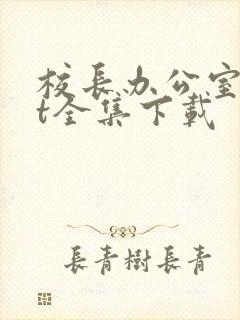 校長办公室
t全集下載
長青樹長青